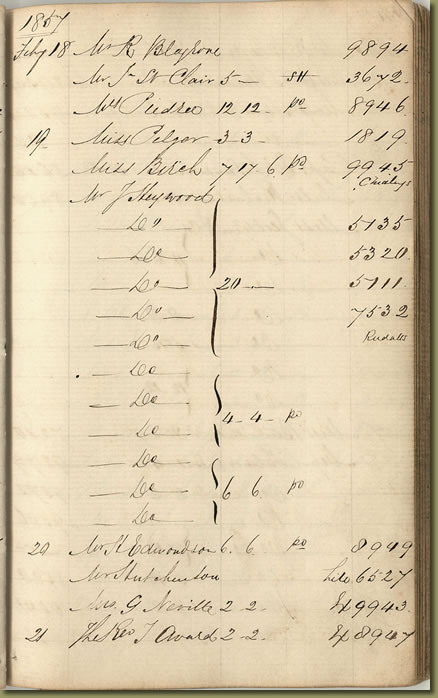 1857
Feby 18 Mr R Blagrove 9894
Mr Jn St Clair 5 — SH 3672.
Mrs Piedra 12 12. po 8946.
19 Miss Pelgar 3 - 3 - 1819.
Miss Birch 7 17 6 po 9945
Mr J Heywood
— Do — 5135
— Do — 5320
— Do — 20 — 5111
— Do — 7532
— Do — Rudalls
— Do —
— Do —
— Do — 4 - 4 - po
— Do —
— Do — 6 6 po
— Do —
20 Mr H Edmondson 6. 6. po 8949
Mr Hutchinson 6527
G Neville 2 - 2 - 9943.
21 The Rev J Award 2 - 2. 8947